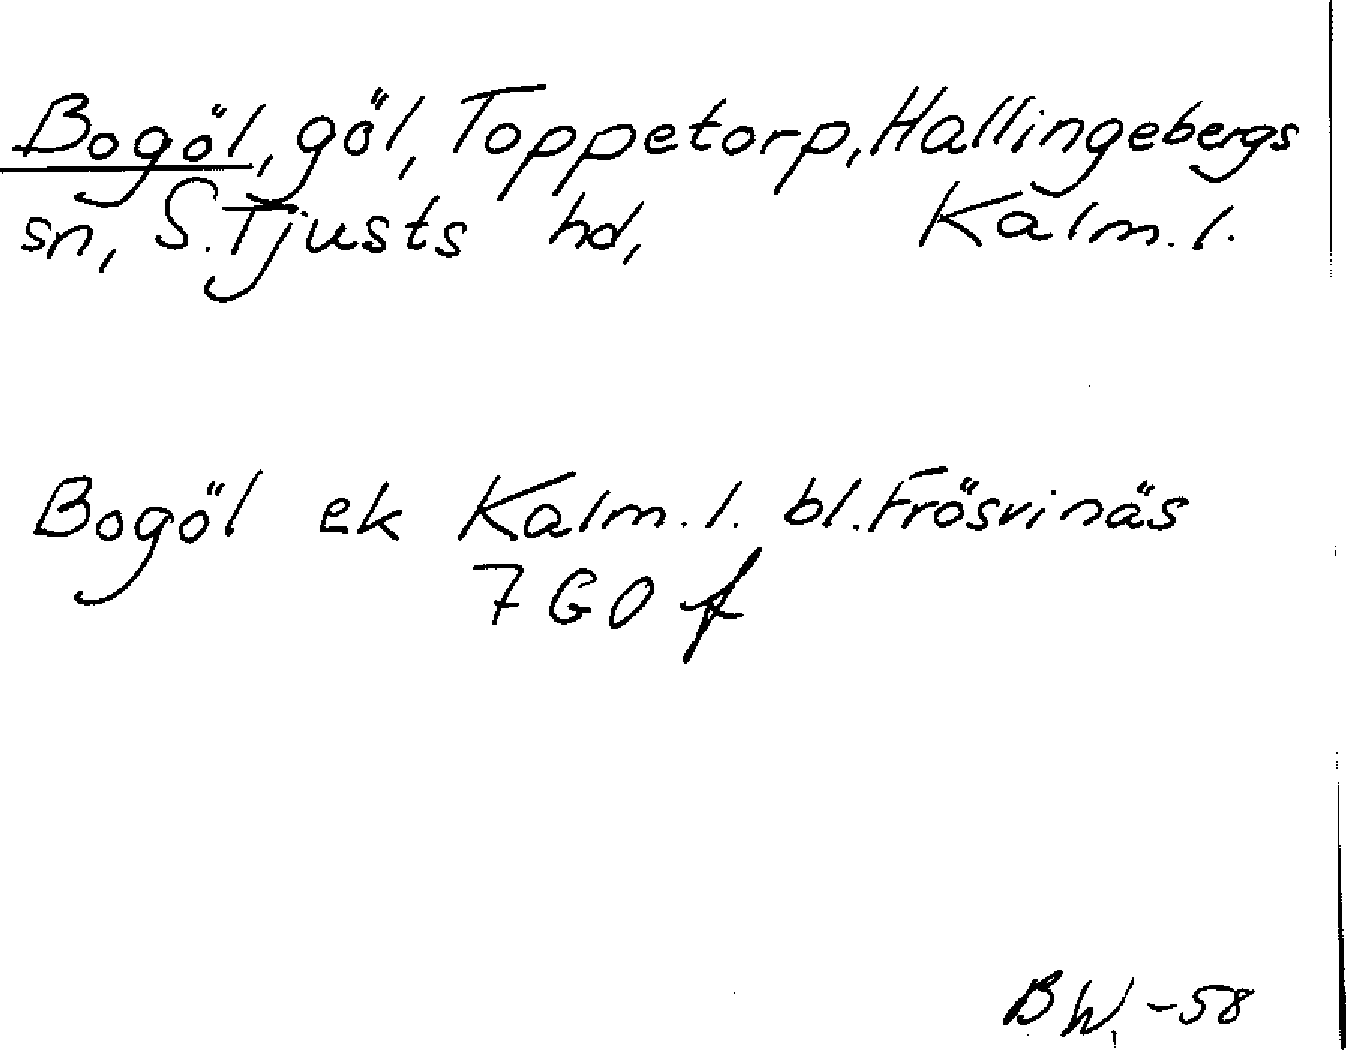 Bogöl, göl, Toppetorp, Hallingebergs
sn, S. Tjusts hd, Kalm. l.
Bogöl ek Kalm. l. bl. Frösvinäs
7G0f
BW -58